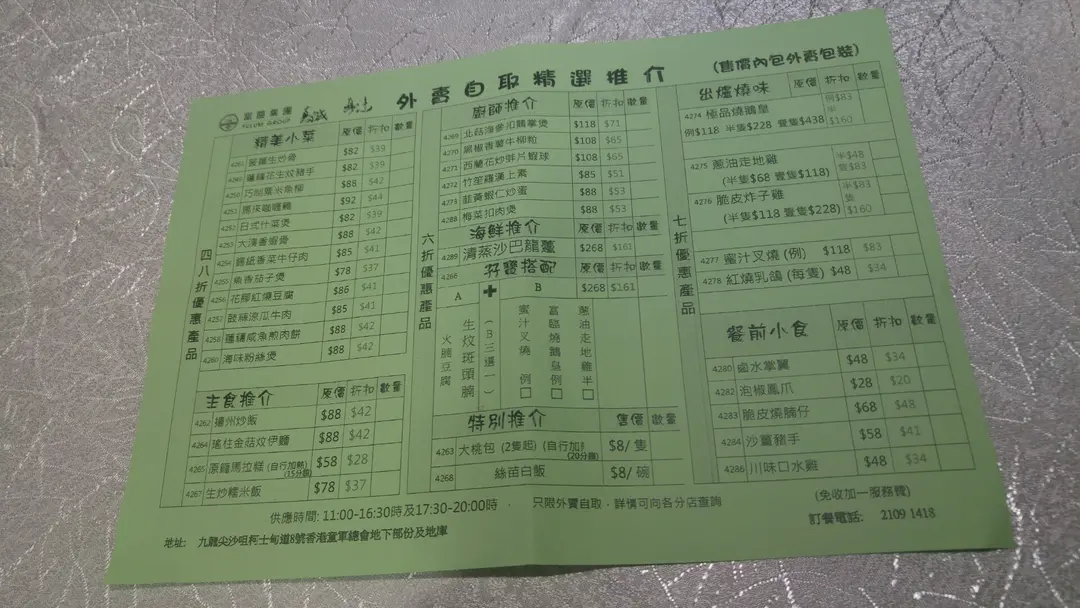 富臨集團
FULUM GROUP
外賣自取精選推介
(售價內包外賣包裝)
四八折優惠產品
精美小菜 原價 折扣 數量
4261 菠蘿生炒骨 $82 $39
蓮藕花生炆豬手 $82 $39
4250 巧制粟米魚柳 $88 $42
4251 馬來咖喱雞 $92 $44
4252 日式什菜煲 $82 $39
4253 大漠香蝦骨 $88 $42
4254 錫紙香菜牛仔肉 $85 $41
4255 魚香茄子煲 $78 $37
4256 花膠紅燒豆腐 $86 $41
4257 豉椒涼瓜牛肉 $85 $41
4258 蓮藕咸魚煎肉餅 $88 $42
4260 海味粉絲煲 $88 $42
主食推介 原價 折扣 數量
4262 揚州炒飯 $88 $42
4264 瑤柱金菇炆伊麵 $88 $42
4265 原籠馬拉糕 (自行加熱) (15分鐘) $58 $28
4267 生炒糯米飯 $78 $37
六折優惠產品
廚師推介 原價 折扣 數量
4269 北菇海參扣鵝掌煲 $118 $71
4270 黑椒香葉牛柳粒 $108 $65
4271 西蘭花炒蚌片蝦球 $108 $65
4272 竹笙羅漢上素 $85 $51
4273 韭黃蝦仁炒蛋 $88 $53
4288 梅菜扣肉煲 $88 $53
海鮮推介 原價 折扣 數量
4289 清蒸沙巴龍躉 $268 $161
孖寶搭配 原價 折扣 數量
4266 $268 $161
A + B
火腩豆腐
生炆斑頭腩
(B三選一)
蜜汁叉燒 例 □
富臨燒鵝皇 例 □
蔥油走地雞 半 □
特別推介 售價 數量
4263 大桃包 (2隻起) (自行加熱) (20分鐘) $8/ 隻
4268 絲苗白飯 $8/ 碗
七折優惠產品
出爐燒味 原價 折扣 數量
4274 極品燒鵝皇 例$83
例$118 半隻$228 壹隻$438 $160
4275 蔥油走地雞 半$48
(半隻$68 壹隻$118) 隻$83
4276 脆皮炸子雞 半$83
(半隻$118 壹隻$228) 隻$160
4277 蜜汁叉燒 (例) $118 $83
4278 紅燒乳鴿 (每隻) $48 $34
餐前小食 原價 折扣 數量
4280 鹵水掌翼 $48 $34
4282 泡椒鳳爪 $28 $20
4283 脆皮燒腩仔 $68 $48
4284 沙薑豬手 $58 $41
4286 川味口水雞 $48 $34
供應時間: 11:00-16:30時及17:30-20:00時 . 只限外賣自取，詳情可向各分店查詢
(免收加一服務費)
地址: 九龍尖沙咀柯士甸道8號香港童軍總會地下部份及地庫
訂餐電話: 2109 1418